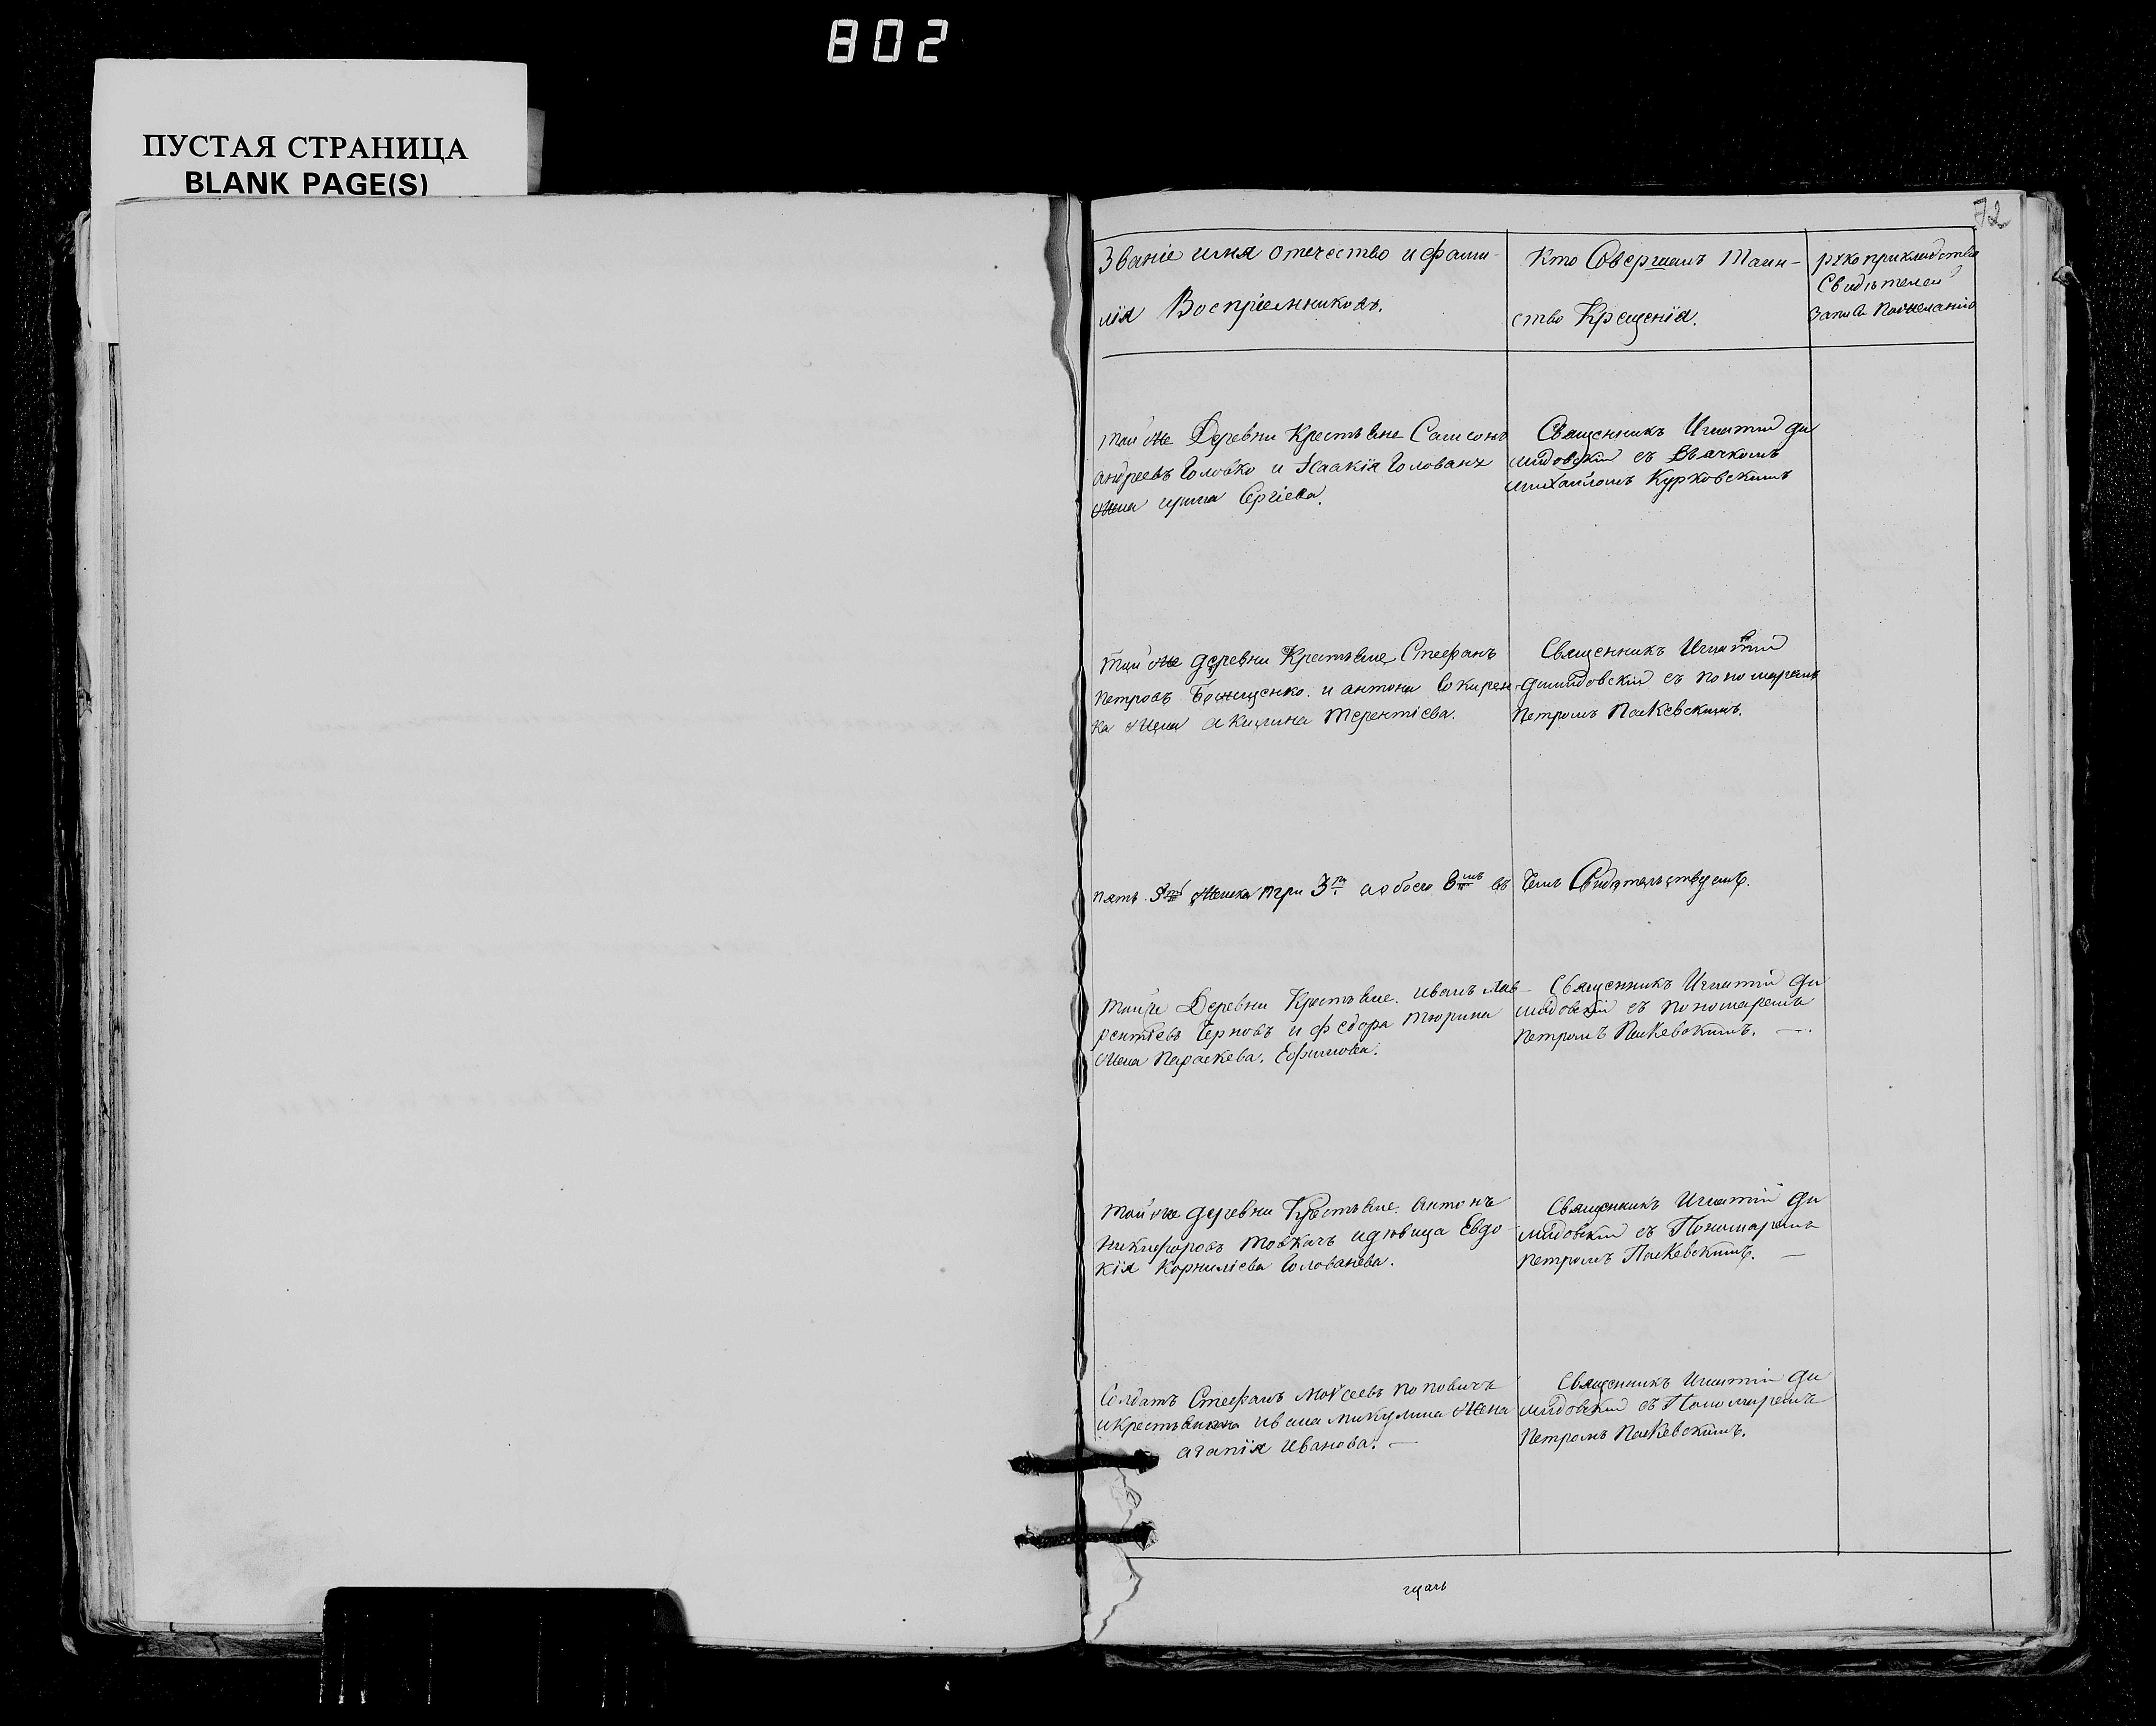 802
ПУСТАЯ СТРАНИЦА
BLANK PAGE(S)
72
Званіе имя отечество и фами-
лія Воспріемниковъ.
Кто Совершалъ Таин-
ство Крещенія.
рукоприкладство
Свидѣтелей
записи по желанію
той же Деревни Крестьяне Самсонъ
андреевъ Головко и Исаакія Голована
жена Сергіева.
Священникъ Игнатій Ди
мидовскій съ Дьячкомъ
михаиломъ Курковскимъ
той же деревни Крестьяне Стефанъ
петровъ и антона Сокирен-
ка жена акилина Терентіева.
Священникъ Игнатій
Димидовскій съ пономаремъ
Петромъ Паскевскимъ.
пять женска три 3 а обоего 8 въ
Чемъ Свидѣтельствуемъ.
той же Деревни Крестьяне. иванъ Лав-
рентіевъ Черновъ и федора Тюрина
жена Параскева. Ефимова.
Священникъ Игнатій Ди
мидовскій съ пономаремъ
петромъ Паскевскимъ. —.
той же деревни Крестьяне. антонъ
Никифоровъ Товкачъ и дѣвица Евдо-
кія Корниліева Голованева.
Священникъ Игнатій Ди
мидовскій съ Пономаремъ
петромъ Паскевскимъ. —
Солдатъ Стефанъ Моѵсеевъ поповичъ
и крестьянина ивана микулина жена
агапія Иванова. —
Священникъ Игнатій Ди
мидовскій съ Пономаремъ
Петромъ Паскевскимъ.